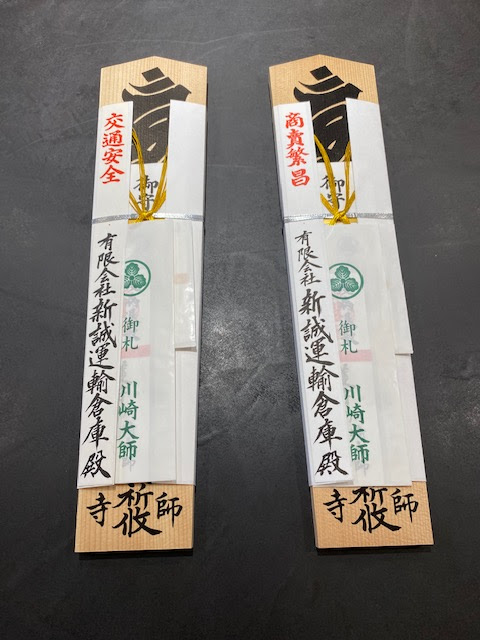 交通安全
御守
有限会社新誠運輸倉庫殿
御札
川崎大師
寺
師
商賣繁昌
御守
有限会社新誠運輸倉庫殿
御札
川崎大師
寺
師